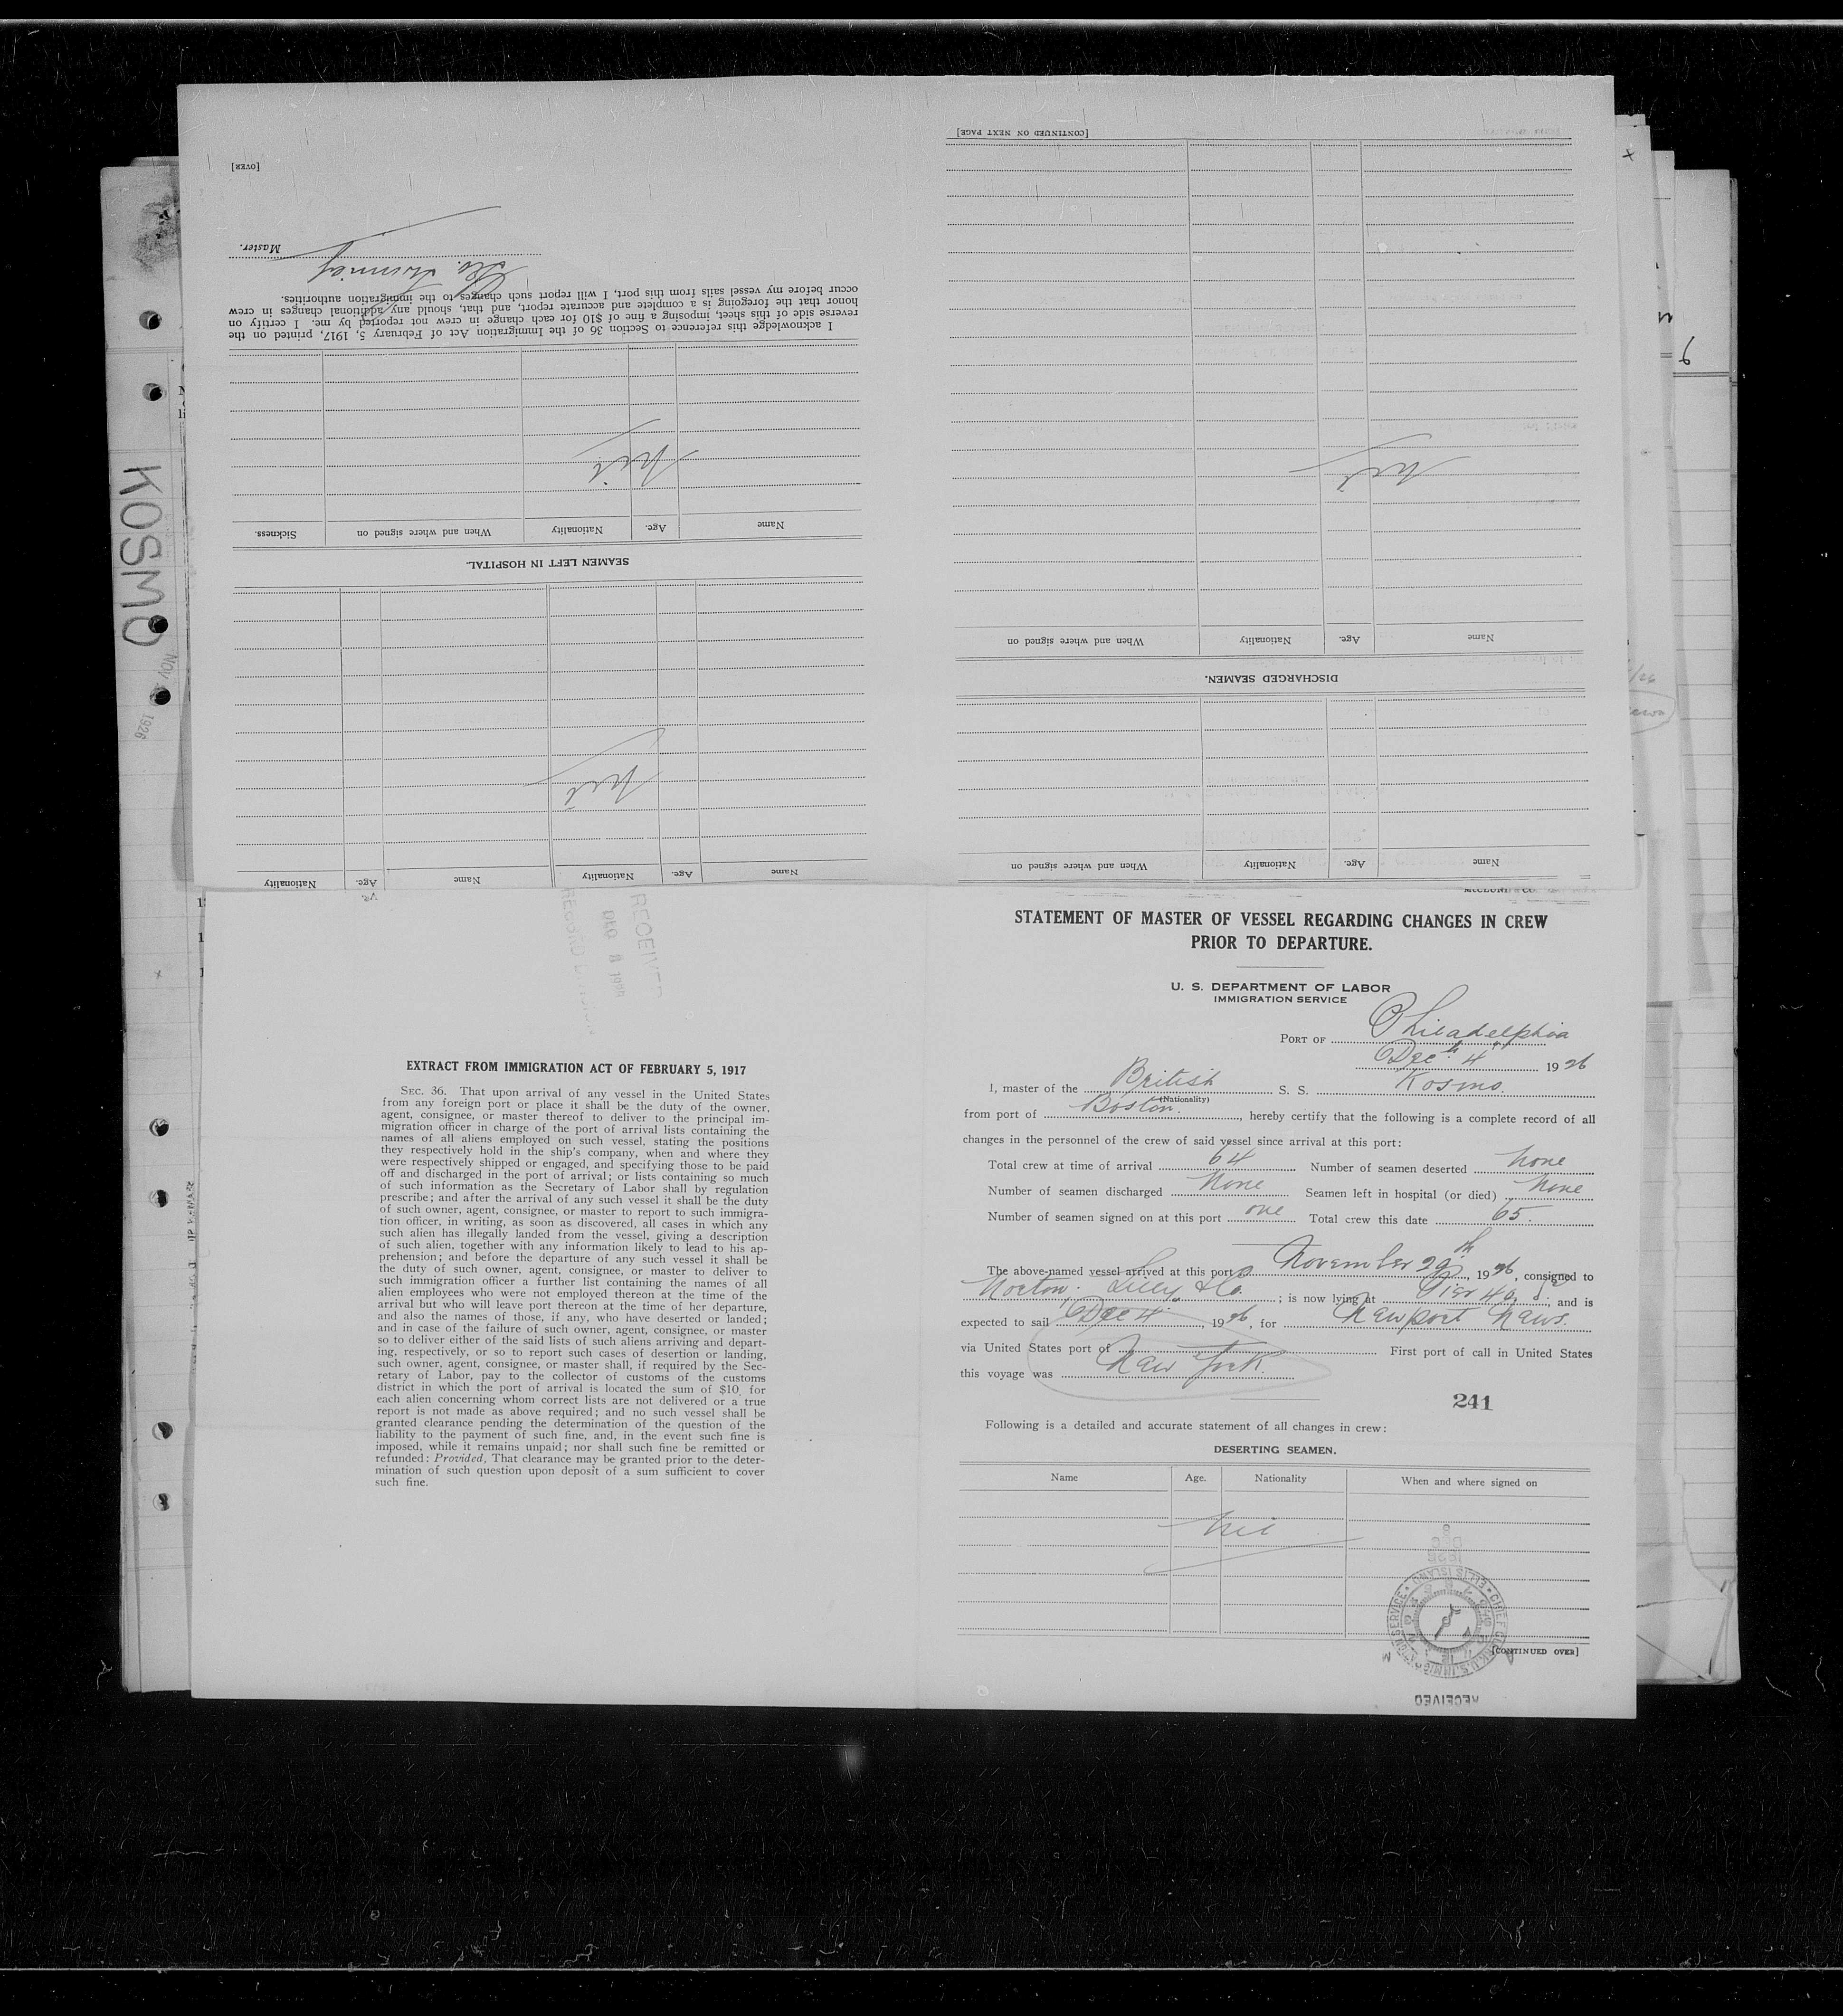 [CONTINUED ON NEXT PAGE]
nil
When and where signed on Nationality Age. Name
DISCHARGED SEAMEN.
When and where signed on Nationality Age. Name
[OVER]
Master.
I acknowledge this reference to Section 36 of the Immigration Act of February 5, 1917, printed on the
reverse side of this sheet, imposing a fine of $10 for each change in crew not reported by me. I certify on
honor that the foregoing is a complete and accurate report, and that, should any additional changes in crew
occur before my vessel sails from this port, I will report such changes to the immigration authorities.
nil
Name Age. Nationality When and where signed on Sickness.
SEAMEN LEFT IN HOSPITAL.
nil
Name Age. Nationality Name Age. Nationality
KOSMO
NOV
1926
RECEIVED
DEC 8
STATEMENT OF MASTER OF VESSEL REGARDING CHANGES IN CREW
PRIOR TO DEPARTURE.
U. S. DEPARTMENT OF LABOR
IMMIGRATION SERVICE
PORT OF Philadelphia
Dec. 4th 1926
I, master of the British S. S. Kosmo.
(Nationality)
from port of Boston., hereby certify that the following is a complete record of all
changes in the personnel of the crew of said vessel since arrival at this port:
Total crew at time of arrival 64 Number of seamen deserted None
Number of seamen discharged None Seamen left in hospital (or died) None
Number of seamen signed on at this port one Total crew this date 65.
The above-named vessel arrived at this port November 29th, 1926, consigned to
Norton. Lilly & Co.; is now lying at Pier 40, and is
expected to sail Dec 4., 1926, for Newport News.
via United States port of First port of call in United States
this voyage was New York.
241
Following is a detailed and accurate statement of all changes in crew:
DESERTING SEAMEN.
Name Age. Nationality When and where signed on
nil
[CONTINUED OVER]
CHIEF CLERK, U.S. IMMIGRATION SERVICE • ELLIS ISLAND •
RECEIVED
EXTRACT FROM IMMIGRATION ACT OF FEBRUARY 5, 1917
SEC. 36. That upon arrival of any vessel in the United States
from any foreign port or place it shall be the duty of the owner,
agent, consignee, or master thereof to deliver to the principal im-
migration officer in charge of the port of arrival lists containing the
names of all aliens employed on such vessel, stating the positions
they respectively hold in the ship's company, when and where they
were respectively shipped or engaged, and specifying those to be paid
off and discharged in the port of arrival; or lists containing so much
of such information as the Secretary of Labor shall by regulation
prescribe; and after the arrival of any such vessel it shall be the duty
of such owner, agent, consignee, or master to report to such immigra-
tion officer, in writing, as soon as discovered, all cases in which any
such alien has illegally landed from the vessel, giving a description
of such alien, together with any information likely to lead to his ap-
prehension; and before the departure of any such vessel it shall be
the duty of such owner, agent, consignee, or master to deliver to
such immigration officer a further list containing the names of all
alien employees who were not employed thereon at the time of the
arrival but who will leave port thereon at the time of her departure,
and also the names of those, if any, who have deserted or landed;
and in case of the failure of such owner, agent, consignee, or master
so to deliver either of the said lists of such aliens arriving and depart-
ing, respectively, or so to report such cases of desertion or landing,
such owner, agent, consignee, or master shall, if required by the Sec-
retary of Labor, pay to the collector of customs of the customs
district in which the port of arrival is located the sum of $10 for
each alien concerning whom correct lists are not delivered or a true
report is not made as above required; and no such vessel shall be
granted clearance pending the determination of the question of the
liability to the payment of such fine, and, in the event such fine is
imposed, while it remains unpaid; nor shall such fine be remitted or
refunded: Provided, That clearance may be granted prior to the deter-
mination of such question upon deposit of a sum sufficient to cover
such fine.